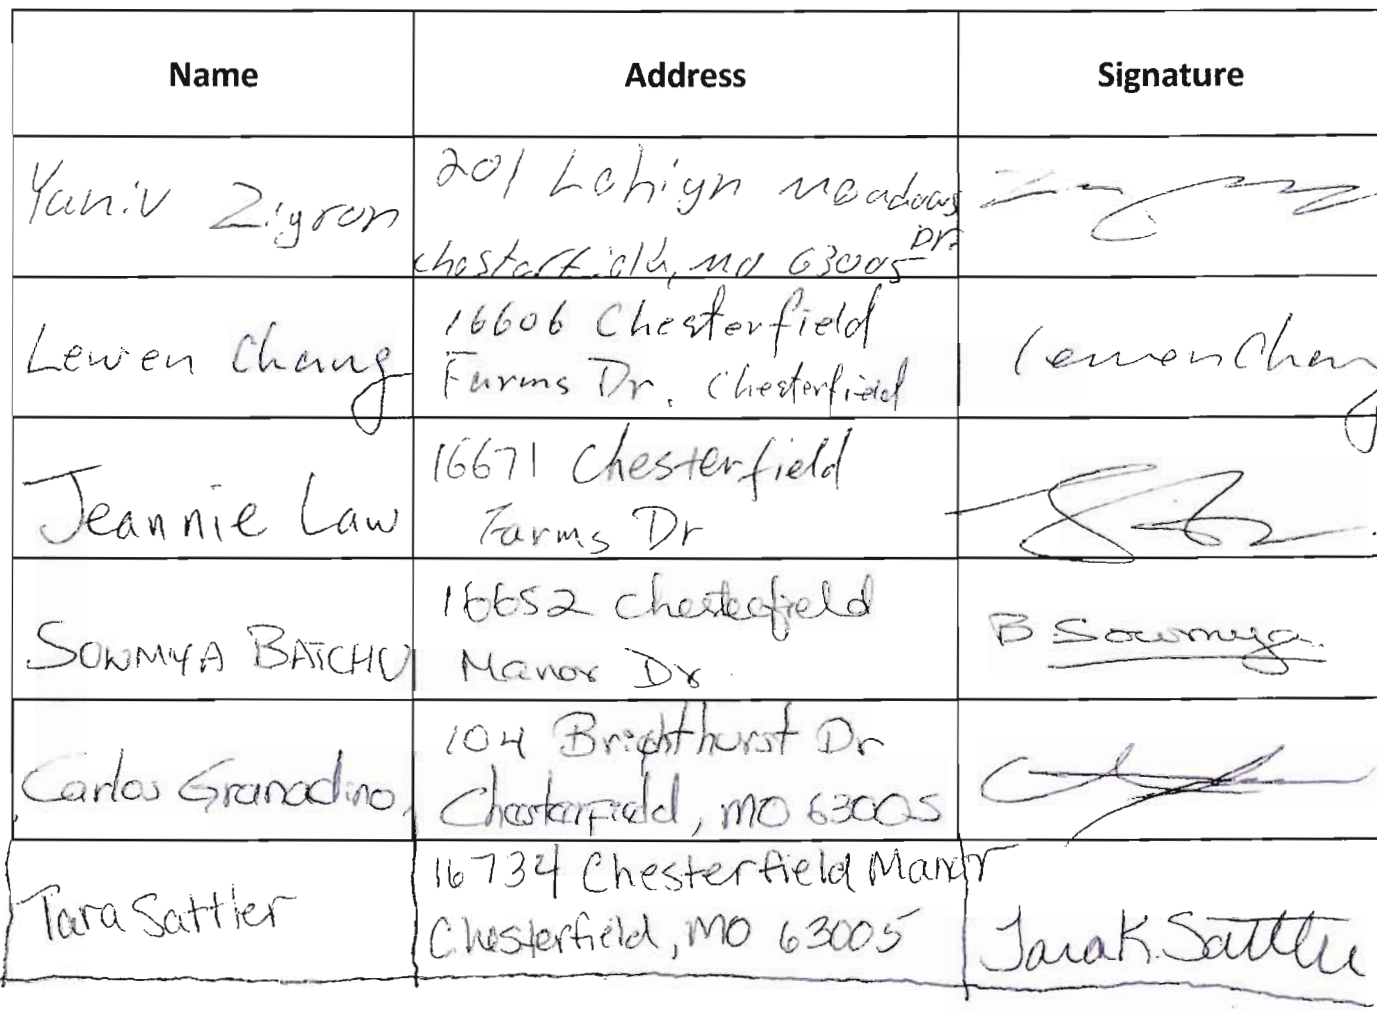 Name Address Signature
Yaniv Zigron
201 Lehigh Meadows
Dr.
Chesterfield, MO 63005
Lewen Chang
16606 Chesterfield
Farms Dr, Chesterfield
Lewen Chang
Jeannie Law
16671 Chesterfield
Farms Dr
SOWMYA BATCHU
16652 Chesterfield
Manor Dr
B Sowmya
Carlos Granadino
104 Brighthurst Dr
Chesterfield, MO 63005
Tara Sattler
16734 Chesterfield Manor
Chesterfield, MO 63005
Tara K Sattler